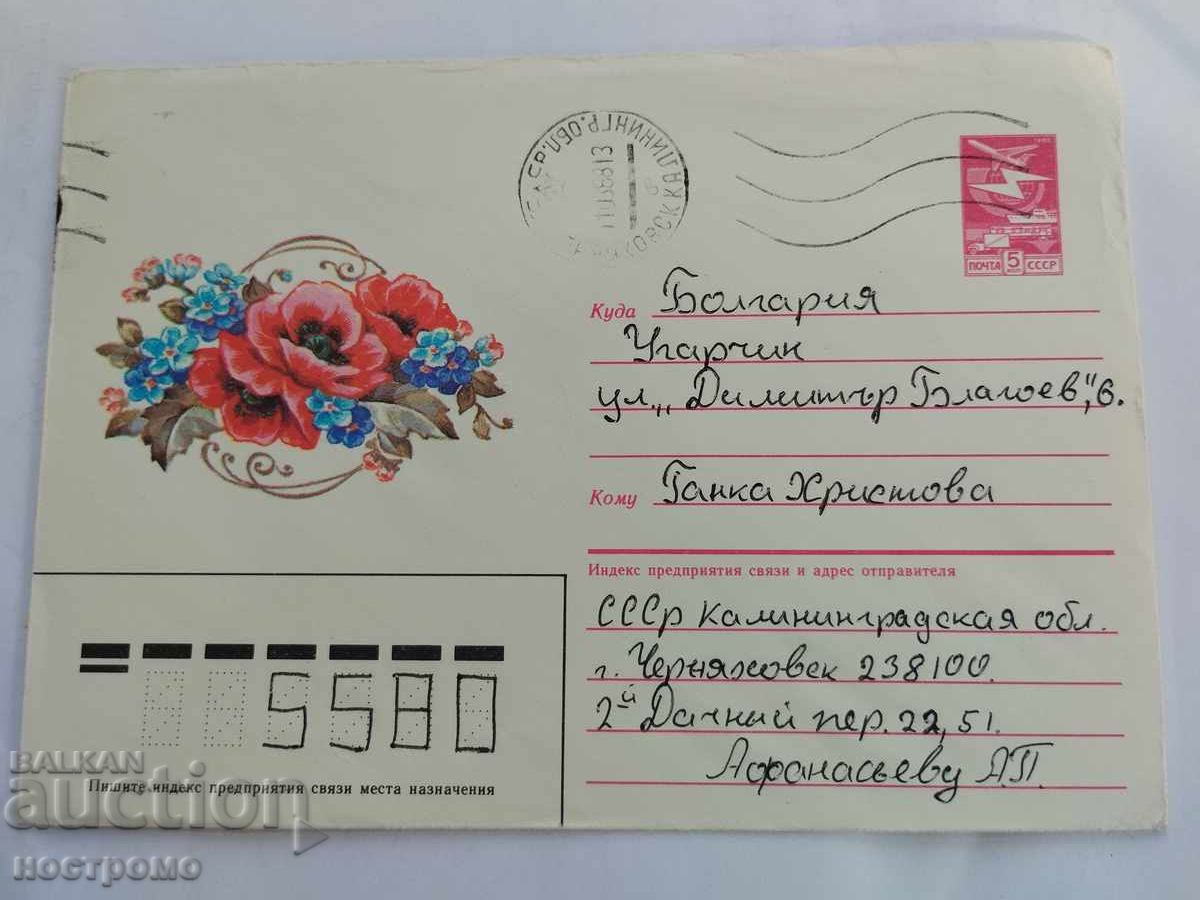 1983
ПОЧТА 5 КОП СССР
КАЛИНИНГР.ОБЛ.
Куда Болгария
Угарчин
ул. „Димитър Благоев", 6.
Кому Ганка Христова
Индекс предприятия связи и адрес отправителя
СССР Калининградская обл.
г. Черняховск 238100.
2й Дачный пер. 22, 51.
Афанасьеву А.П.
5580
Пишите индекс предприятия связи места назначения
BALKAN
auction
ностромо